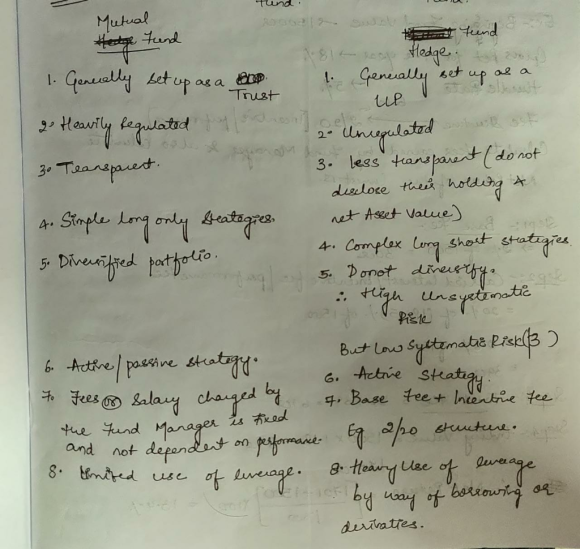 Fund.
Mutual
Hedge Fund
1. Generally set up as a
Trust
2. Heavily Regulated
3. Transparent.
4. Simple long only Strategies.
5. Diversified portfolio.
6. Active/passive strategy.
7. Fees OR Salary charged by
the Fund Manager is fixed
and not dependent on performance.
8. Limited use of leverage.
Fund
Hedge.
1. Generally set up as a
LLP
2. Unregulated
3. less transparent (do not
disclose their holding &
net Asset Value)
4. Complex long short strategies.
5. Do not diversify.
∴ High Unsystematic
Risk
But Low Systematic Risk (β)
6. Active Strategy.
7. Base Fee + Incentive Fee
Eg 2/20 structure.
8. Heavy Use of leverage
by way of borrowing or
derivaties.